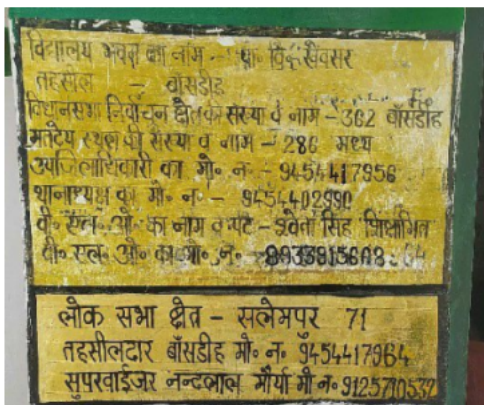 विद्यालय भवन का नाम - प्रा० वि० खेवसर
तहसील - बाँसडीह
विधानसभा निर्वाचन क्षेत्र का संख्या व नाम - 362 बाँसडीह
मतदेय स्थल की संख्या व नाम - 286 मध्य
उपजिलाधिकारी का मो० न० - 9454417956
थानाध्यक्ष का मो० न० - 9454402990
वी० एल० ओ० का नाम व पद - श्वेता सिंह शिक्षामित्र
वी० एल० ओ० का मो० न० -
लोक सभा क्षेत्र - सलेमपुर 71
तहसीलदार बाँसडीह मो० न० 9454417964
सुपरवाईजर नन्दलाल मौर्या मो न० 9125710532